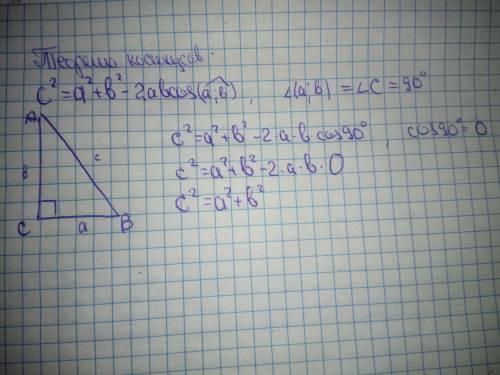 Теорема косинусов.
c² = a² + b² - 2abcos(a,b) , ∠(a;b) = ∠C = 90°
A
c² = a² + b² - 2·a·b·cos90° , cos90° = 0
b c
c² = a² + b² - 2·a·b·0
c² = a² + b²
C a B